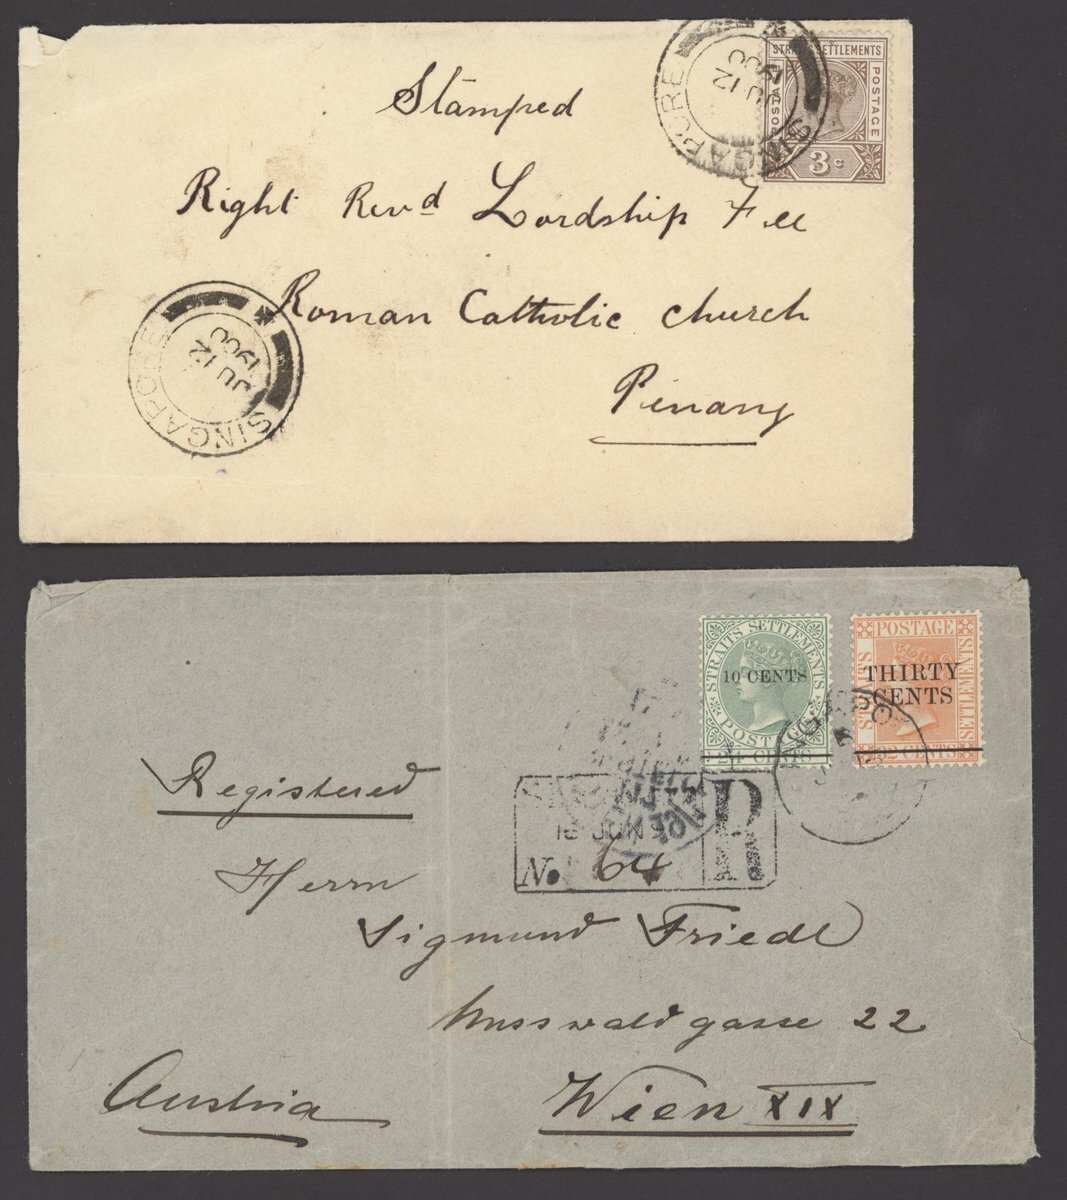 STRAITS SETTLEMENTS
POSTAGE
3 c
SINGAPORE
JU 12
1900
Stamped
Right Revd Lordship Fee
Roman Catholic church
Penang
SINGAPORE
JU 12
1900
STRAITS SETTLEMENTS
10 CENTS
POSTAGE
24 CENTS
POSTAGE
STRAITS
SETTLEMENTS
THIRTY
CENTS
32 CENTS
Registered
R
JUN
No. 64
Herrn
Sigmund Friedl
Unsswaldgasse 22
Austria
Wien XIX